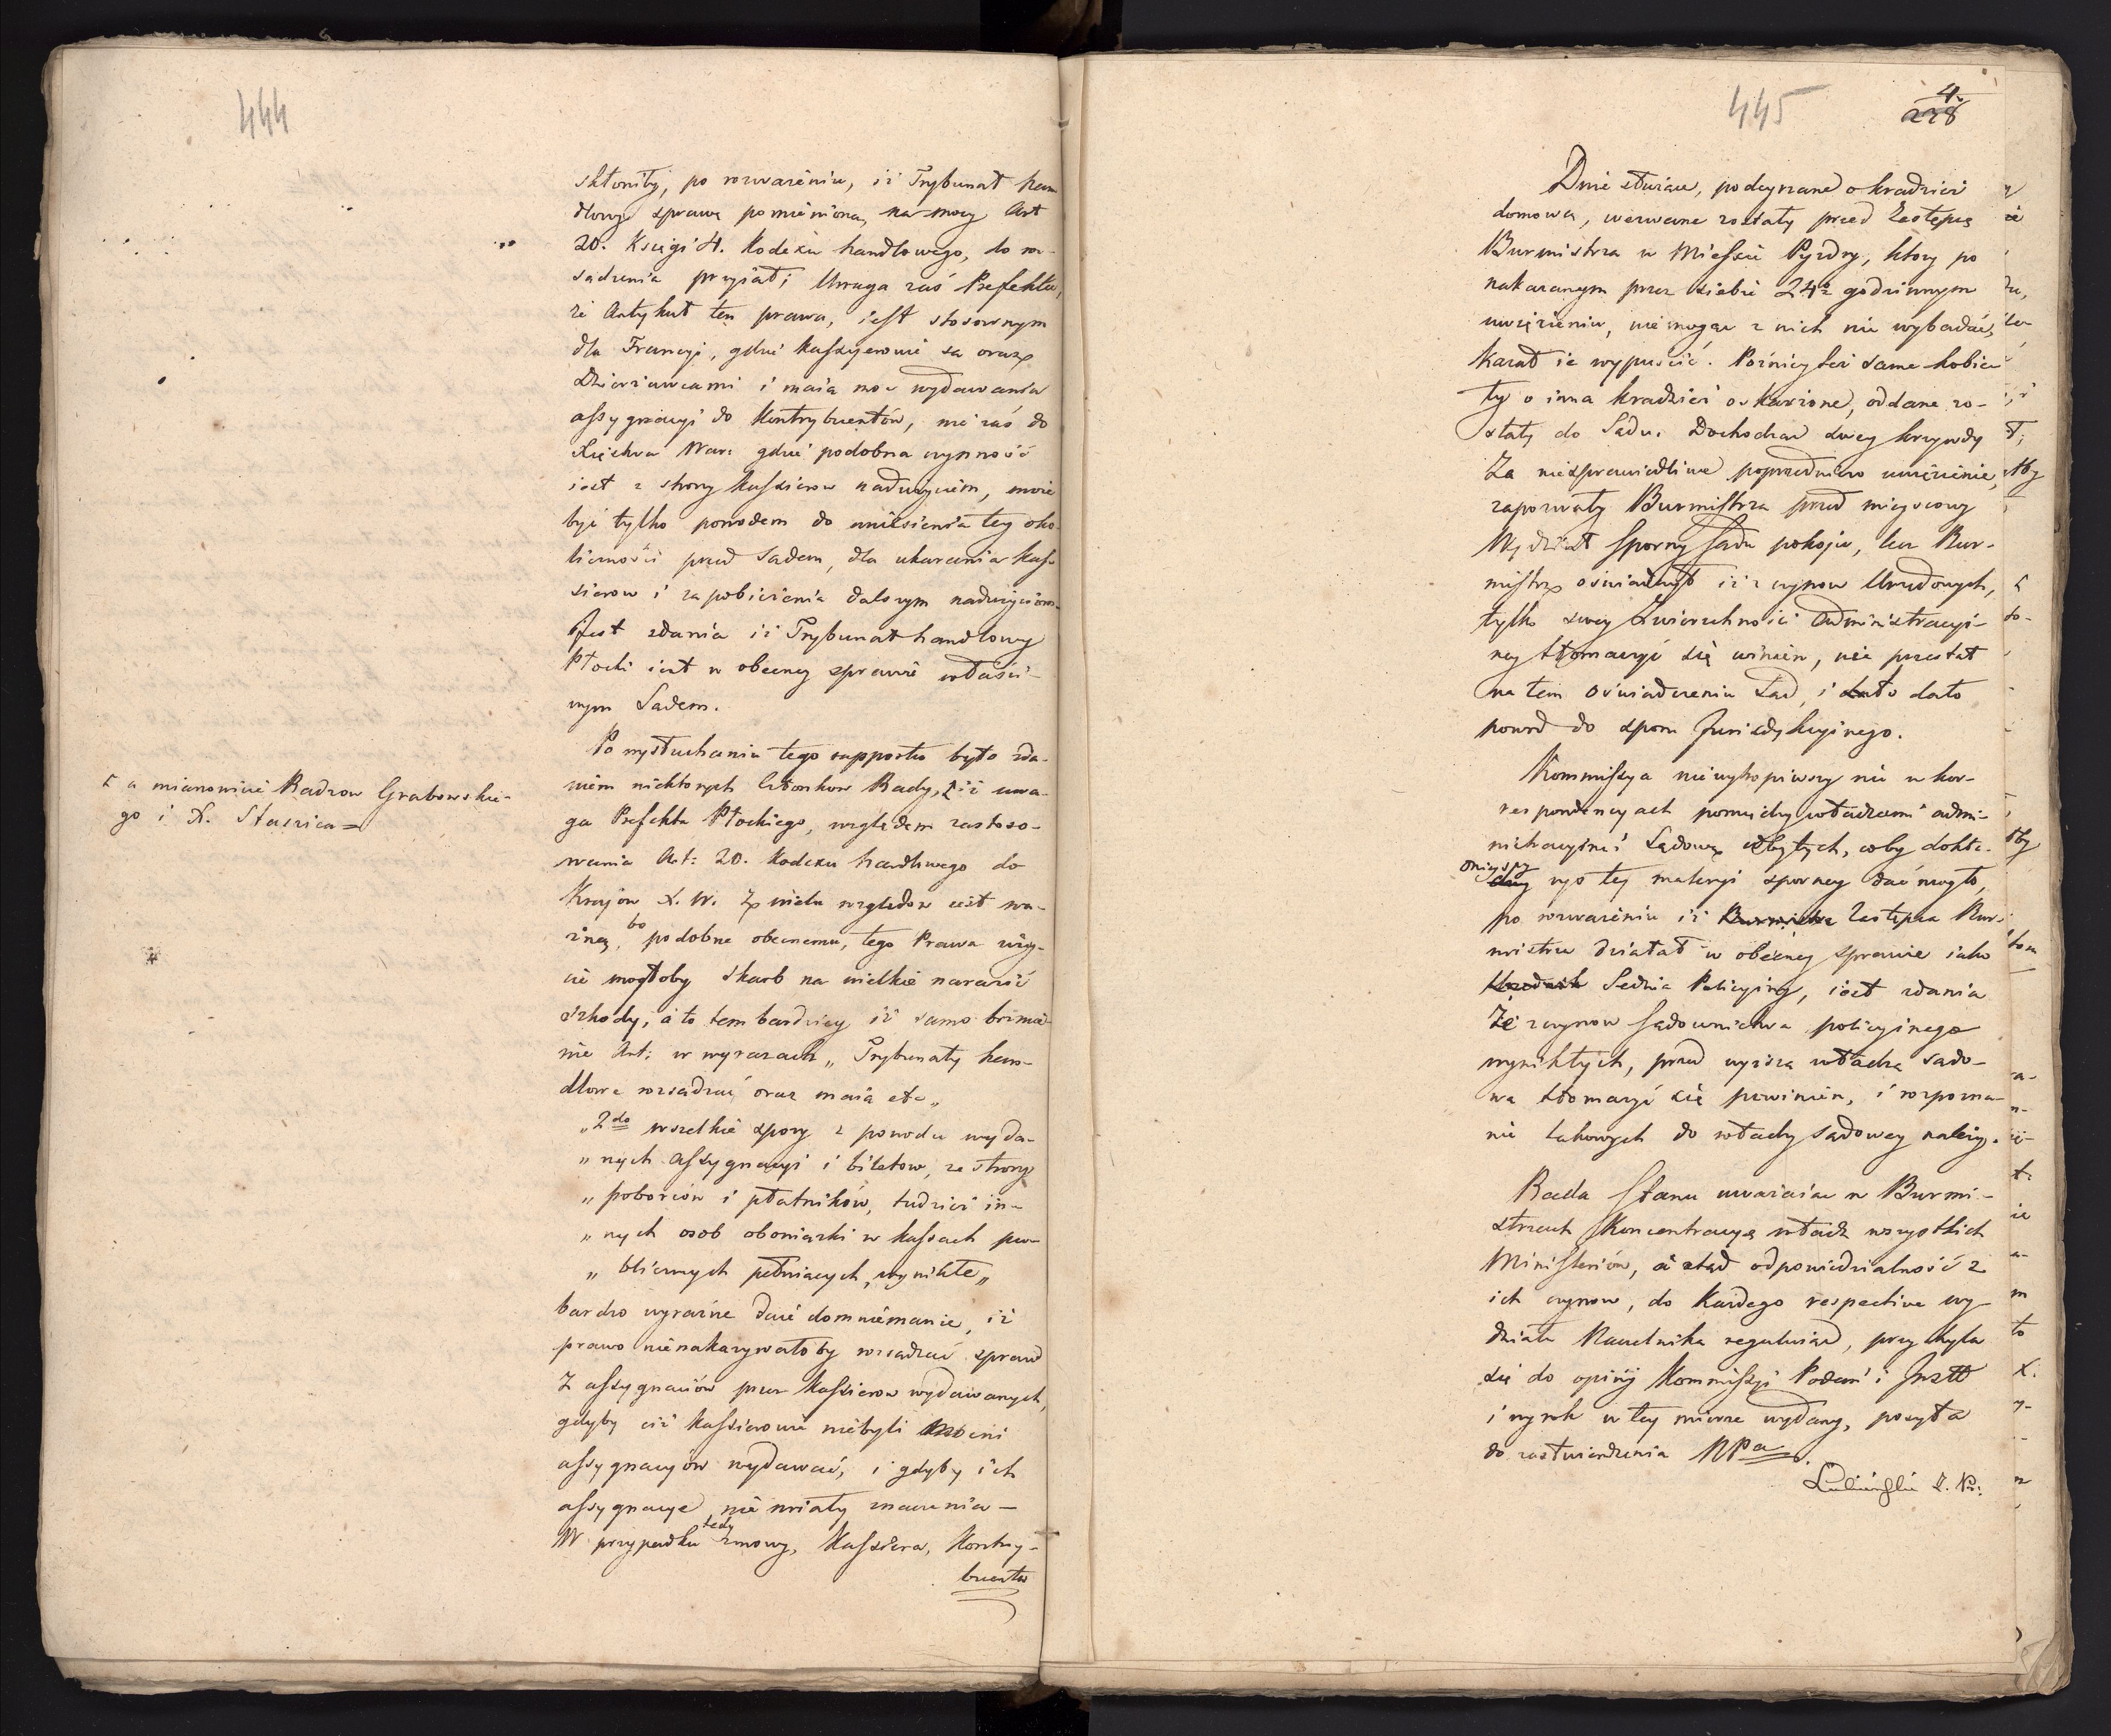 444
skłoniły, po rozważeniu, iż Trybunał han
dlowy sprawę pomienioną, na mocy Art
20. Księgi 4. Kodexu handlowego, do ro-
sądzenia przyiął; Uwaga zaś Prefekta,
że Artykuł ten prawa, iest stosownym
dla Francyi, gdzie kassyerowie są oraz
Dzierżawcami i maią moc wydawania
assygnacyi do Kontrybuentów, nie zaś do
Xięstwa War: gdzie podobna czynność
iest z strony kassierow nadużyciem, może
być tylko powodem do wniesienia tey oko-
liczności przed Sądem, dla ukarania kas-
sierow i zapobieżenia dalszym nadużyciom.
Jest zdania iż Trybunał handlowy
Płocki iest w obecney sprawie właści-
wym Sądem.
Po wysłuchaniu tego rapportu było zda-
niem niektorych Członkow Rady, iż uwa-
ga Prefekta Płockiego, względem zastoso-
wania Art: 20. Kodexu handlowego do
Kraiów X. W. z wielu względow iest wa-
żną, bo podobne obecnemu, tego Prawa uży-
cie mogłoby Skarb na wielkie narazić
szkody, a to tem bardziey iż samo brzmie-
nie Art: w wyrazach „ Trybunały han-
dlowe rozsądzać oraz maią etc „
„ 2do wszelkie spory z powodu wyda-
„ nych assygnacyi i biletow, ze strony
„ poborców i płatników, tudzież in-
„ nych osob obowiązki w kassach pu-
„ blicznych pełniących, wynikłe „
bardzo wyraźne daie domniemanie, iż
prawo nienakazywałoby rozsądzać spraw
z assygnacyów przez kassierow wydawanych,
gdyby ciż kassierowie niebyli mocni
assygnacyów wydawać, i gdyby ich
assygnacye nie miały znaczenia —
W przypadku tedy zmowy, Kassiera, Kontry-
buenta
a mianowicie Radzcow Grabowskie-
go i X. Staszica =
445
4.
228
Dwie służące, podeyrzane o kradzież
domową, wezwane zostały przed Zastępcę
Burmistrza w Mieście Pyzdry, ktory po
nakazanym przez siebie 24r godzinnym
uwięzieniu, niemogąc z nich nic wybadać,
kazał ie wypuścić. Poźniey też same kobie-
ty o inną kradzież oskarżone, oddane zo-
stały do Sądu. Dochodząc swey krzywdy
za niesprawiedliwe poprzedniczo uwięzienie,
zapozwały Burmistrza przed mieyscowy
Wydział Sporny Sądu pokoju, lecz Bur-
mistrz oświadczył iż z czynow Urzędowych,
tylko swey Zwierzchności Administracyi-
ney tłomaczyć się winien, nie przestał
na tem oświadczeniu Sąd, i to dało
powod do sporu Jurisdykcyinego.
Kommissya niewykopiwszy nic w kor-
respondencyach pomiędzy władzami admi-
nistracyiną i Sądową odbytych, coby dokła-
dnieyszy rys tey materyi sporney dać mogło,
po rozważeniu iż Zastępca Bur-
mistrza działał w obecney sprawie iako
Sędzia Policyiny, iest zdania
że z czynow Sądownictwa policyinego
wynikłych, przed wyższą władzą sądo-
wą tłomaczyć się powinien, i rozpozna-
nie takowych do władzy sądowey należy.
Rada Stanu uważaiąc w Burmi-
strzach Koncentracyą władz wszystkich
Ministeriów, a ztąd odpowiedzialność z
ich czynow, do każdego respective wy-
działu Naczelnika reguluiąc, przychyla
się do opinij Kommissyi Podań i Instr
i wyrok w tey mierze wydany, posyła
do zatwierdzenia NPa.
Lubieński Z. Pr: